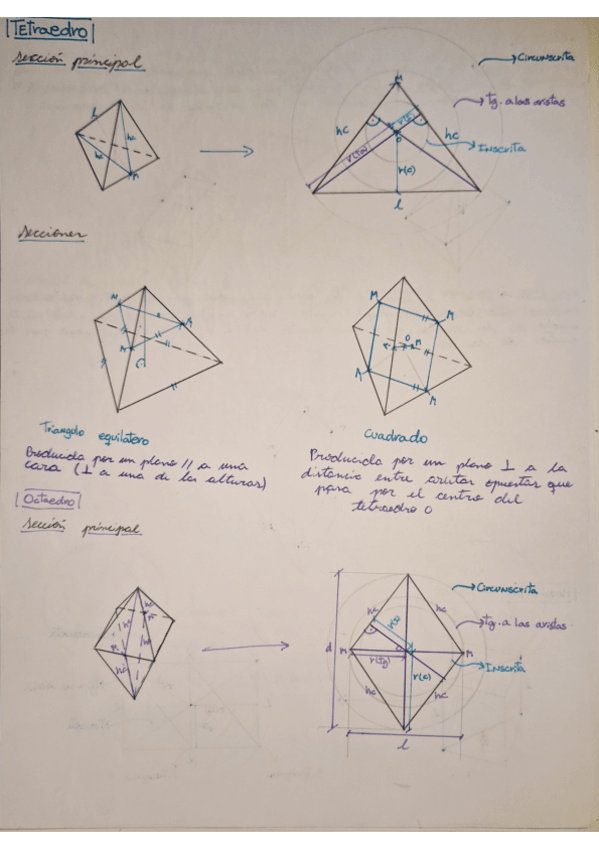 Tetraedro
Sección principal
Circunscrita
tg. a las aristas
Inscrita
M
hc
hc
O
r(i)
r(tg)
r(c)
l
l
hc
hc
M
Secciones
M
M
A
M
M
O
M
A
A
Triangulo equilatero
Cuadrado
Producida por un plano // a una
cara (⊥ a una de las alturas)
Producida por un plano ⊥ a la
distancia entre aristas opuestas que
pasa por el centro del
tetraedro O
Octaedro
Sección principal
Circunscrita
tg. a las aristas
Inscrita
hc
hc
M
hc
hc
d
M
r(tg)
r(c)
M
hc
hc
l